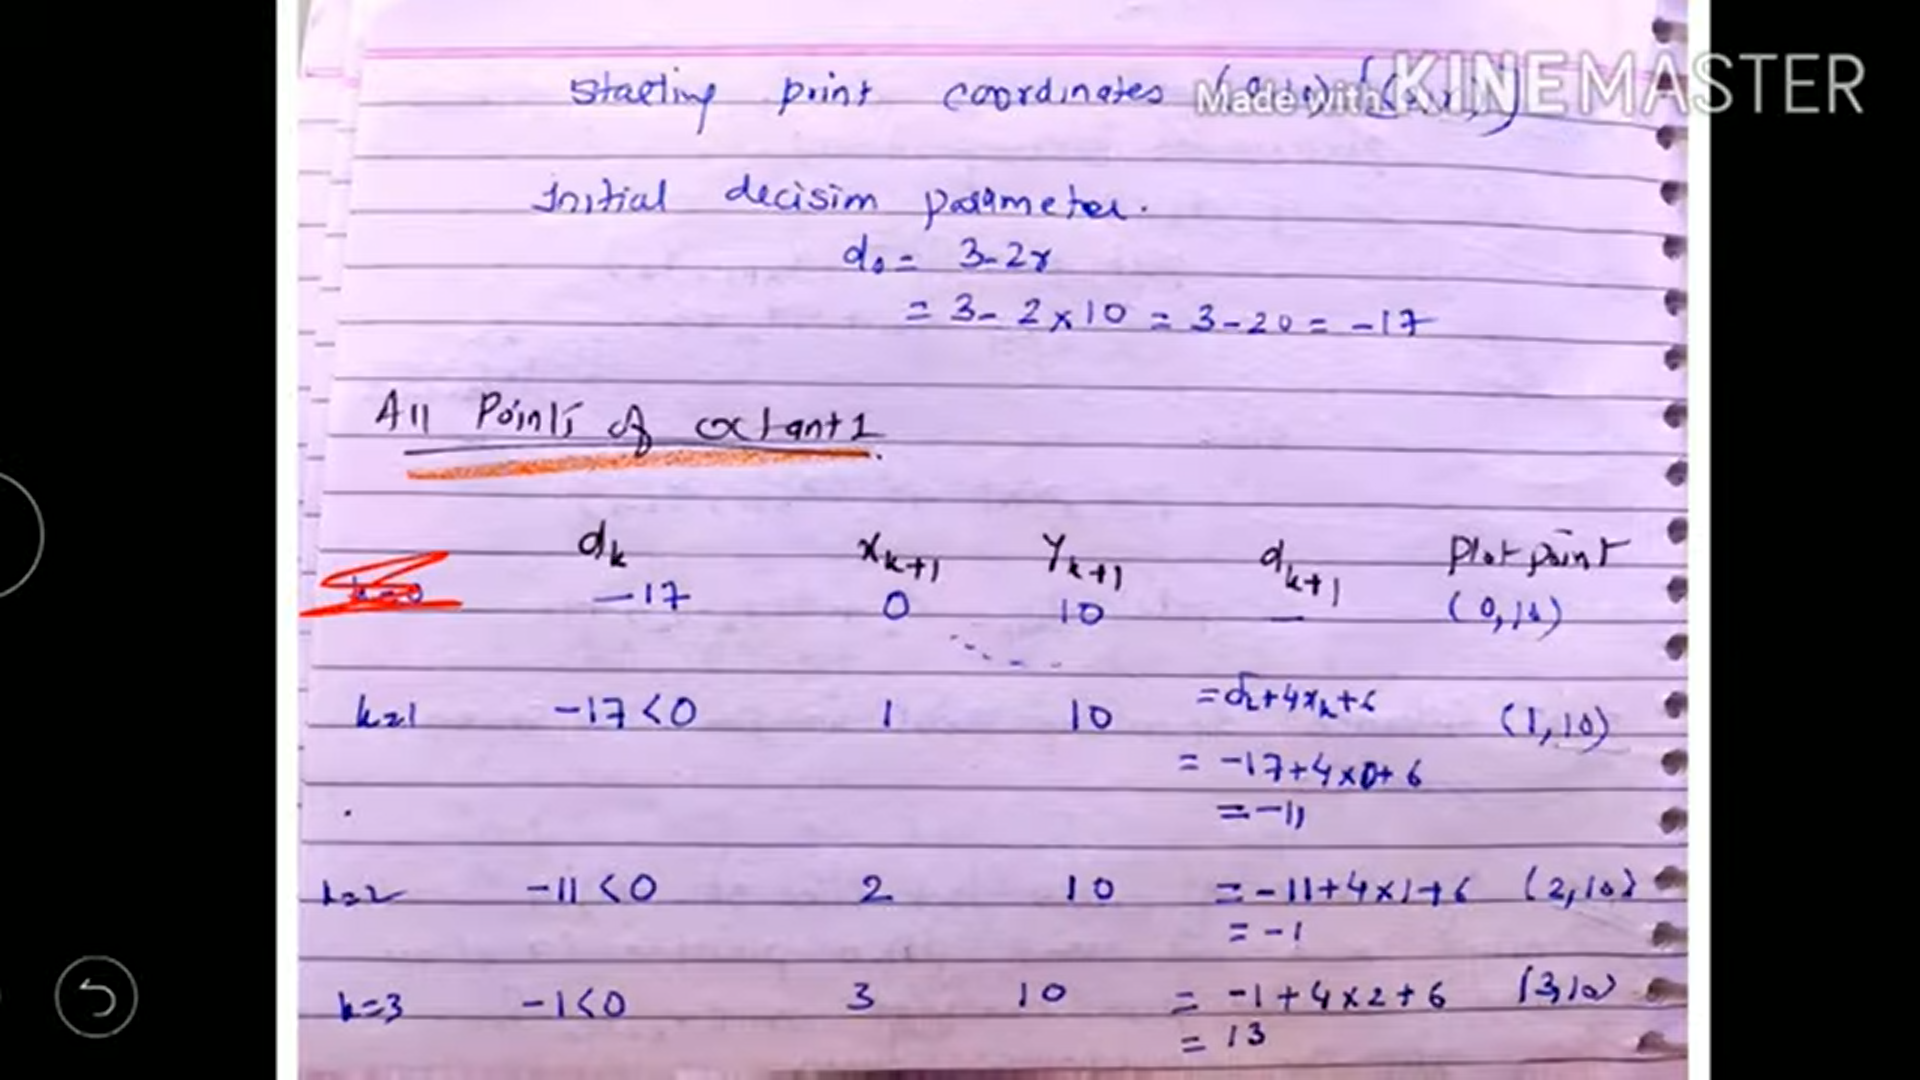 Starting point coordinates
Made with KINEMASTER
Initial decision parameter.
d₀ = 3-2r
= 3- 2×10 = 3-20 = -17
All Points of octant 1
dk xk+1 yk+1 dk+1 Plot point
k=0 -17 0 10 — (0,10)
k=1 -17<0 1 10 =dk+4xk+6 (1,10)
= -17+4×0+6
= -11
k=2 -11<0 2 10 = -11+4×1+6 (2,10)
= -1
k=3 -1<0 3 10 = -1+4×2+6 (3,10)
= 13